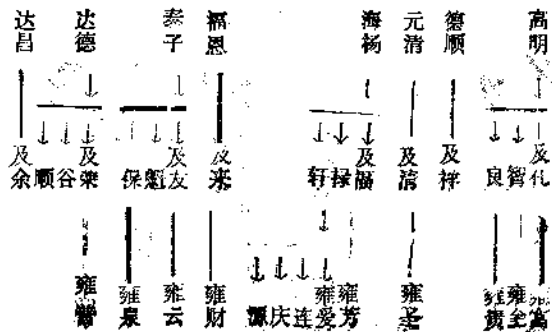 高明 德顺 元清 海杨 福恩 泰子 达德 达昌
及 智 良 及祥 及清 及福 禄 轩 及来 及友 魁 保 及荣 谷 顺 及余
雍富 雍全 雍贵 雍圣 雍芳 雍爱 连 庆 源 雍财 雍云 雍泉 雍